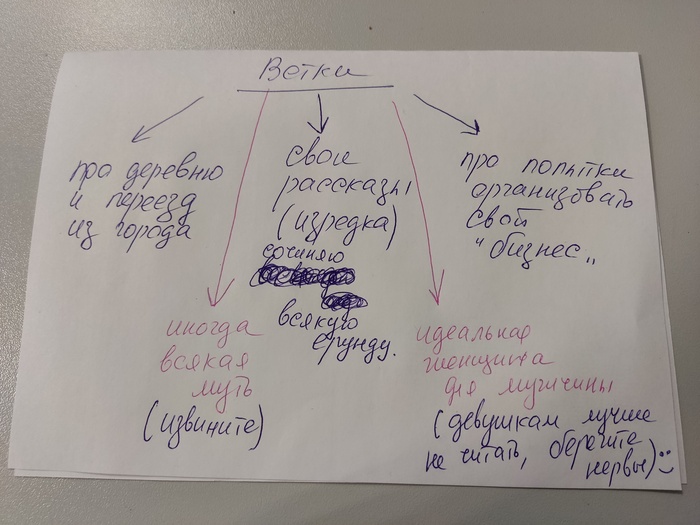 Ветки
про деревню
и переезд
из города
свои
рассказы
(изредка)
сочиняю
всякую
ерунду.
про попытки
организовать
свой
"бизнес„
иногда
всякая
муть
(извините)
идеальная
женщина
для мужчины
(девушкам лучше
не читать, берегите
нервы)